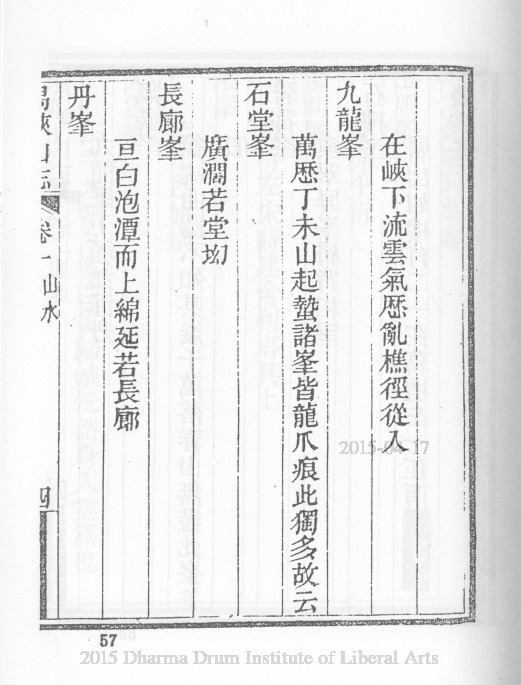 在峽下流雲氣歷亂樵徑從入
九龍峯
萬歷丁未山起蟄諸峯皆龍爪痕此獨多故云
石堂峯
廣濶若堂坳
長廊峯
亘白泡潭而上綿延若長廊
丹峯
峽山志
卷一山水
四
57
2015-04-17
2015 Dharma Drum Institute of Liberal Arts